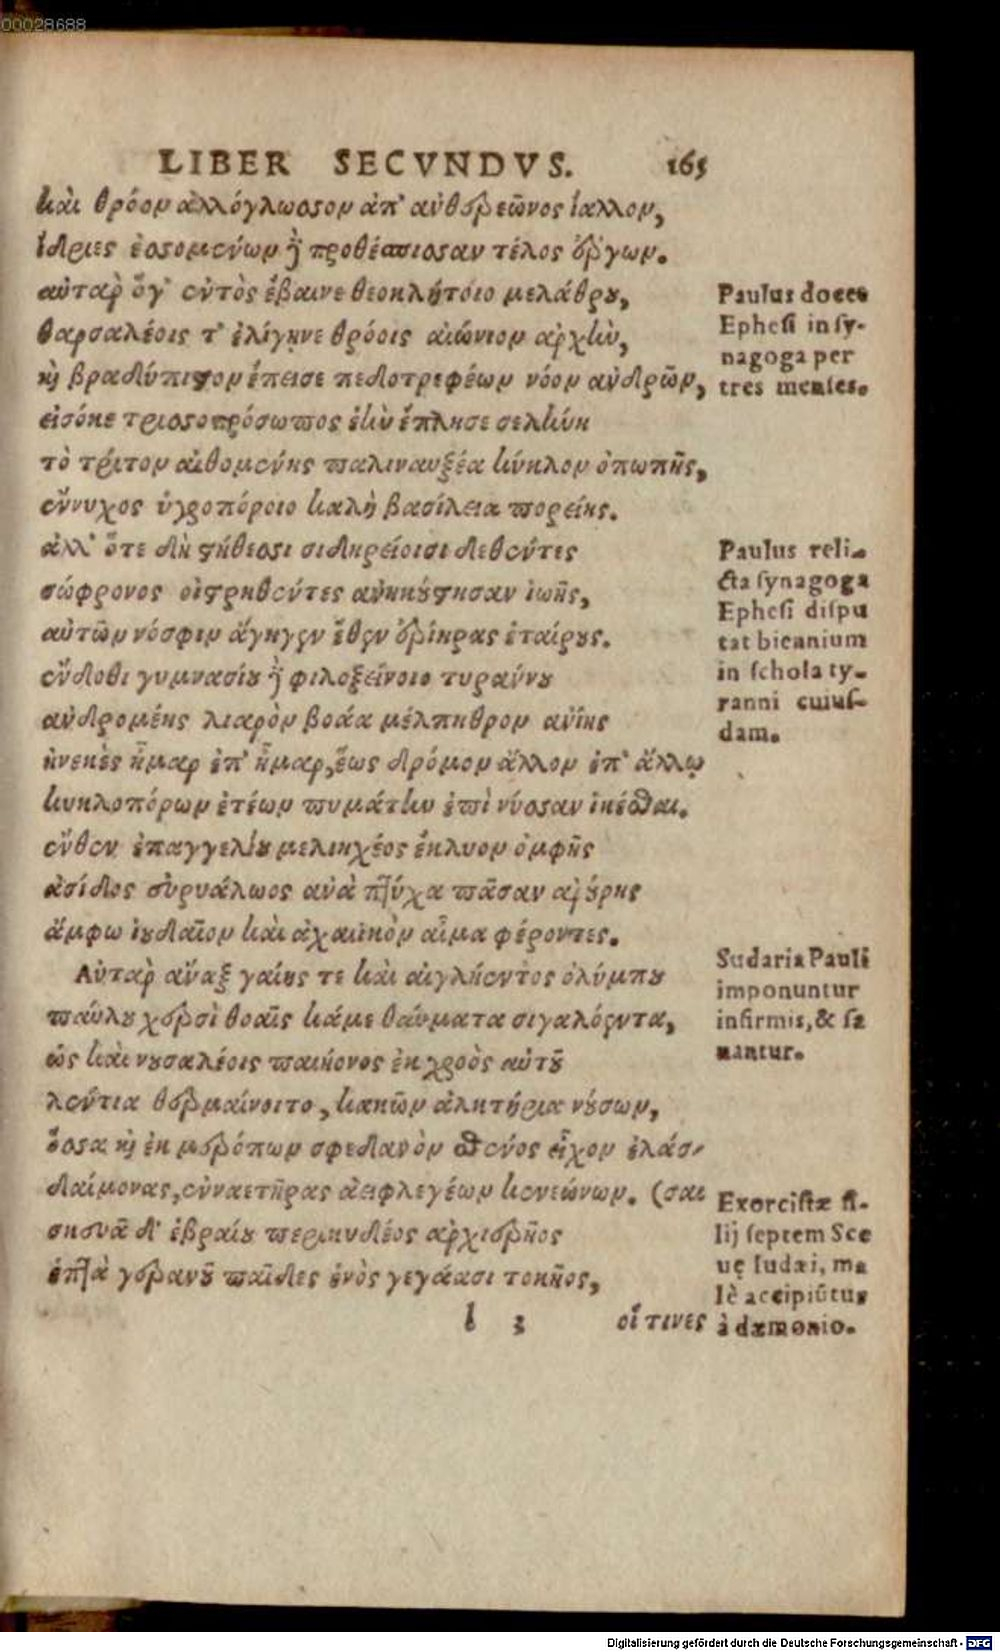 00028688
LIBER SECVNDVS. 165
καὶ θρόον ἀλλόγλωσσον ἀπ' ἀνθερεῶνος ἴαλλον,
ἴδριες ἐσσομένων ἢ προθέσπισαν τέλος ἔργων.
αὐτὰρ ὅγ' ἐντὸς ἔβαινε θεοκλήτοιο μελάθρου,
θαρσαλέοις τ' ἐλίγηνε θρόοις αἰώνιον ἀρχὴν,
καὶ βραδύπιστον ἔπεισε πεδοτρεφέων νόον ἀνδρῶν,
εἰσόκε τρισσοπρόσωπος ἑὴν ἔπλησε σελήνη
τὸ τρίτον αἰθομένης παλιναυξέα κύκλον ὀπωπῆς,
ἔννυχος ὑγροπόροιο καλὴ βασίλεια πορείης.
ἀλλ' ὅτε δὴ στήθεσσι σιδηρείοισι δεθέντες
σώφρονος οἰστρηθέντες ἀνηκούστησαν ἰωῆς,
αὐτῶν νόσφιν ἄγηγεν ἔθεν ἐρίηρας ἑταίρους.
ἔνδοθι γυμνασίου ἢ φιλοξείνοιο τυράννου
ἀνδρομένης λιαρὸν βοάα μέλπηθρον ἀνίης
ἠνεκὲς ἦμαρ ἐπ' ἦμαρ, ἕως δρόμον ἄλλον ἐπ' ἄλλῳ
κυκλοπόρων ἐτέων πυμάτην ἐπὶ νύσσαν ἱκέσθαι.
ἔνθεν ἐπαγγελίου μελιηχέος ἔκλυον ὀμφῆς
ἀσίδος εὐρυάλωος ἀνὰ πτύχα πᾶσαν ἀρούρης
ἄμφω ἰουδαῖον καὶ ἀχαιικὸν αἷμα φέροντες.
Αὐτὰρ ἄναξ γαίης τε καὶ αἰγλήεντος ὀλύμπου
παύλου χερσὶ θοαῖς κάμε θαύματα σιγαλόεντα,
ὡς καὶ νουσαλέοις παιήονος ἐκ χροὸς αὐτοῦ
λέντια θερμαίνοιτο, κακῶν ἀλκτήρια νούσων,
ὅσσα καὶ ἐκ μερόπων σφεδανὸν σθένος εἶχον ἐλάσ-
δαίμονας, ἐνναετῆρας ἀειφλεγέων κενεώνων. (σαι
σκευᾶ δ' ἑβραίου περικυδέος ἀρχιερῆος
ἑπτὰ γεράνου παῖδες ἑνὸς γεγάασι τοκῆος,
l 3 οἵ τινες
Paulus docet
Ephesi in sy-
nagoga per
tres menses.
Paulus reli-
cta synagoga
Ephesi dispu
tat biennium
in schola ty-
ranni cuius-
dam.
Sudaria Pauli
imponuntur
infirmis, & sa
nantur.
Exorcistæ fi-
lij septem Sce
uę Iudæi, ma
lè accipiūtur
à dæmonio.
Digitalisierung gefördert durch die Deutsche Forschungsgemeinschaft - DFG